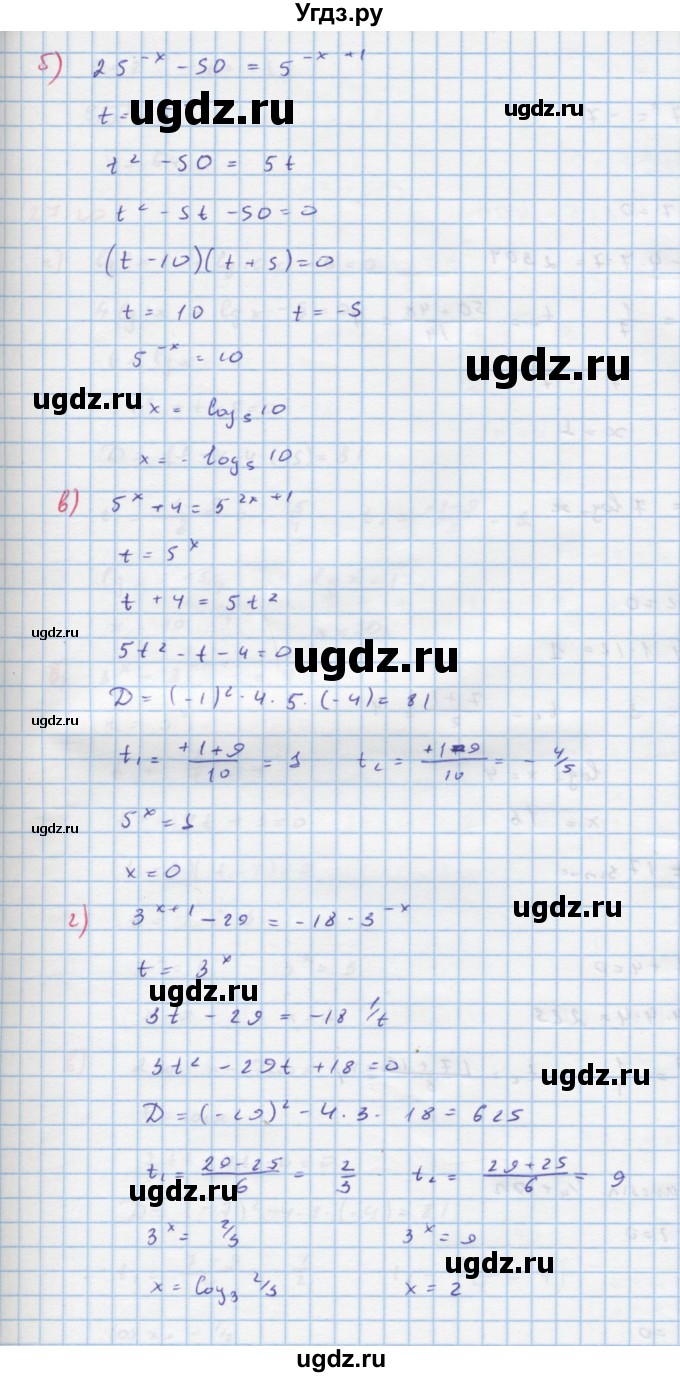 Угдз.ру
б) 25^{-x} - 50 = 5^{-x+1}
ugdz.ru ugdz.ru
t =
t² - 50 = 5t
t² - 5t - 50 = 0
(t - 10)(t + 5) = 0
t = 10 t = -5
5^{-x} = 10
ugdz.ru
ugdz.ru x = log₅10
x = - log₅10
в) 5^x + 4 = 5^{2x+1}
t = 5^x
t + 4 = 5t²
ugdz.ru
5t² - t - 4 = 0 ugdz.ru
D = (-1)² - 4 · 5 · (-4) = 81
ugdz.ru
t₁ = (+1+9)/10 = 1 t₂ = (+1-9)/10 = - 4/5
5^x = 1
ugdz.ru
x = 0
г) 3^{x+1} - 29 = -18 · 3^{-x}
ugdz.ru
t = 3^x
ugdz.ru
3t - 29 = -18 1/t
3t² - 29t + 18 = 0
ugdz.ru
D = (-29)² - 4 · 3 · 18 = 625
t₁ = (29-25)/6 = 2/3 t₂ = (29+25)/6 = 9
ugdz.ru
3^x = 2/3 3^x = 9
ugdz.ru
x = log₃ 2/3 x = 2
ugdz.ru